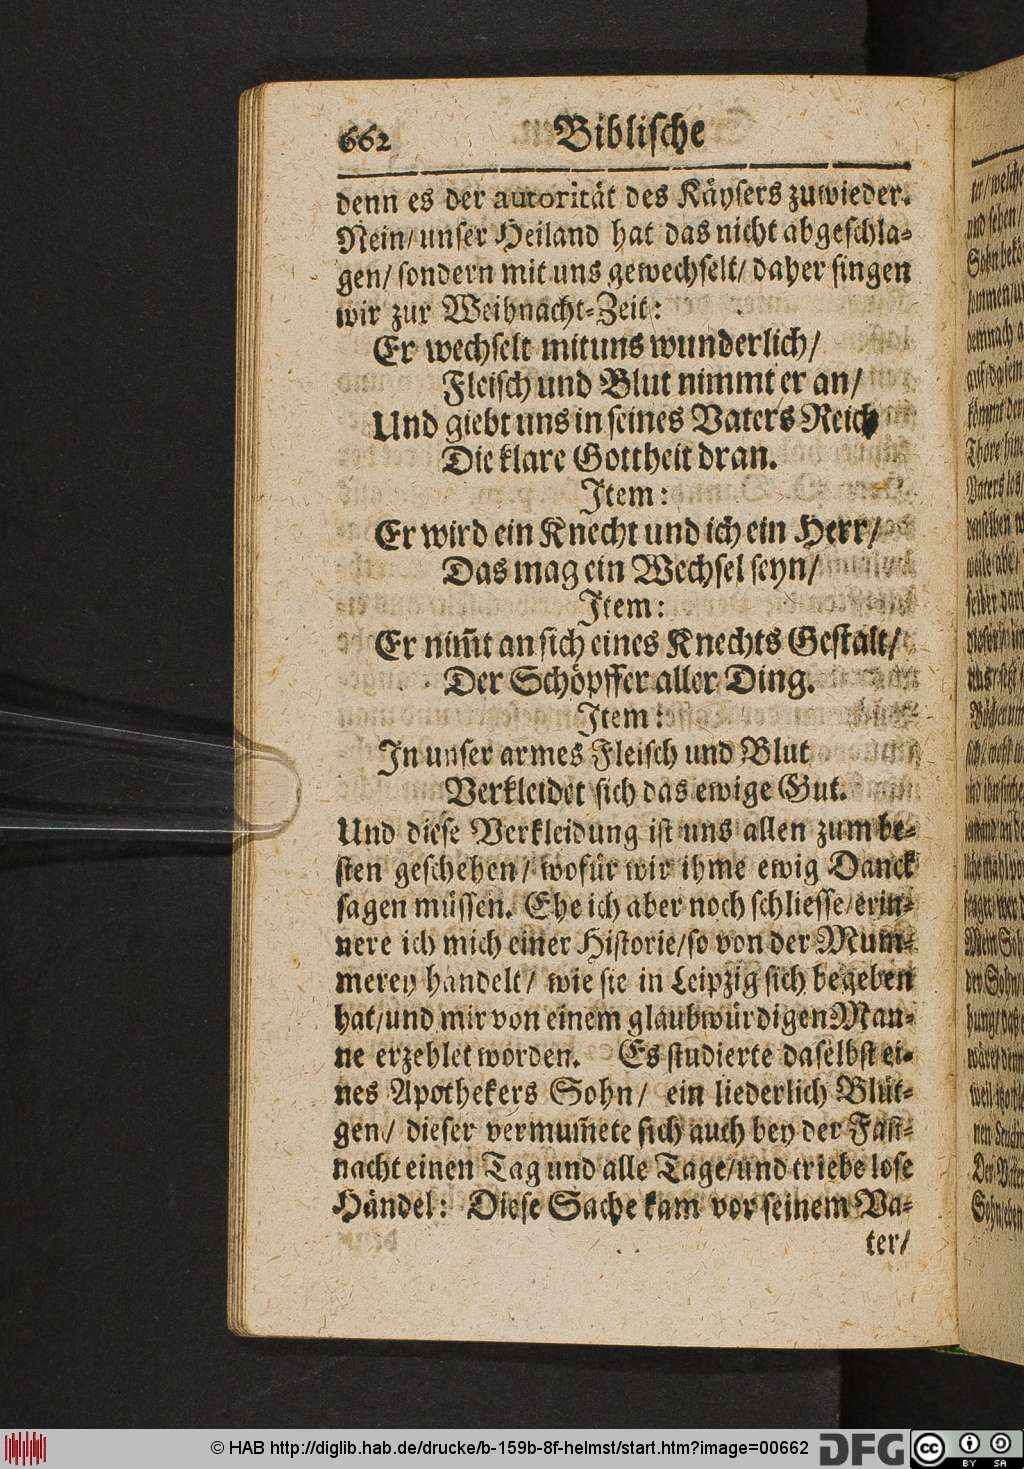 662 Biblische
denn es der autorität des Kåysers zuwieder.
Nein/ unser Heiland hat das nicht abgeschla-
gen/ sondern mit uns gewechselt/ daher singen
wir zur Weihnacht-Zeit:
Er wechselt mit uns wunderlich/
Fleisch und Blut nimmt er an/
Und giebt uns in seines Vaters Reich
Die klare Gottheit dran.
Item:
Er wird ein Knecht und ich ein Herr/
Das mag ein Wechsel seyn/
Item:
Er nim̃t an sich eines Knechts Gestalt/
Der Schöpffer aller Ding.
Item:
In unser armes Fleisch und Blut
Verkleidet sich das ewige Gut.
Und diese Verkleidung ist uns allen zum be-
sten geschehen/ wofür wir ihme ewig Danck
sagen müssen. Ehe ich aber noch schliesse/ erin-
nere ich mich einer Historie/ so von der Mum-
merey handelt/ wie sie in Leipzig sich begeben
hat/ und mir von einem glaubwürdigen Man-
ne erzehlet worden. Es studierte daselbst ei-
nes Apothekers Sohn/ ein liederlich Blüt-
gen/ dieser vermum̃ete sich auch bey der Fast-
nacht einen Tag und alle Tage/ und triebe lose
Händel: Diese Sache kam vor seinem Va-
ter/
© HAB http://diglib.hab.de/drucke/b-159b-8f-helmst/start.htm?image=00662 DFG cc BY SA